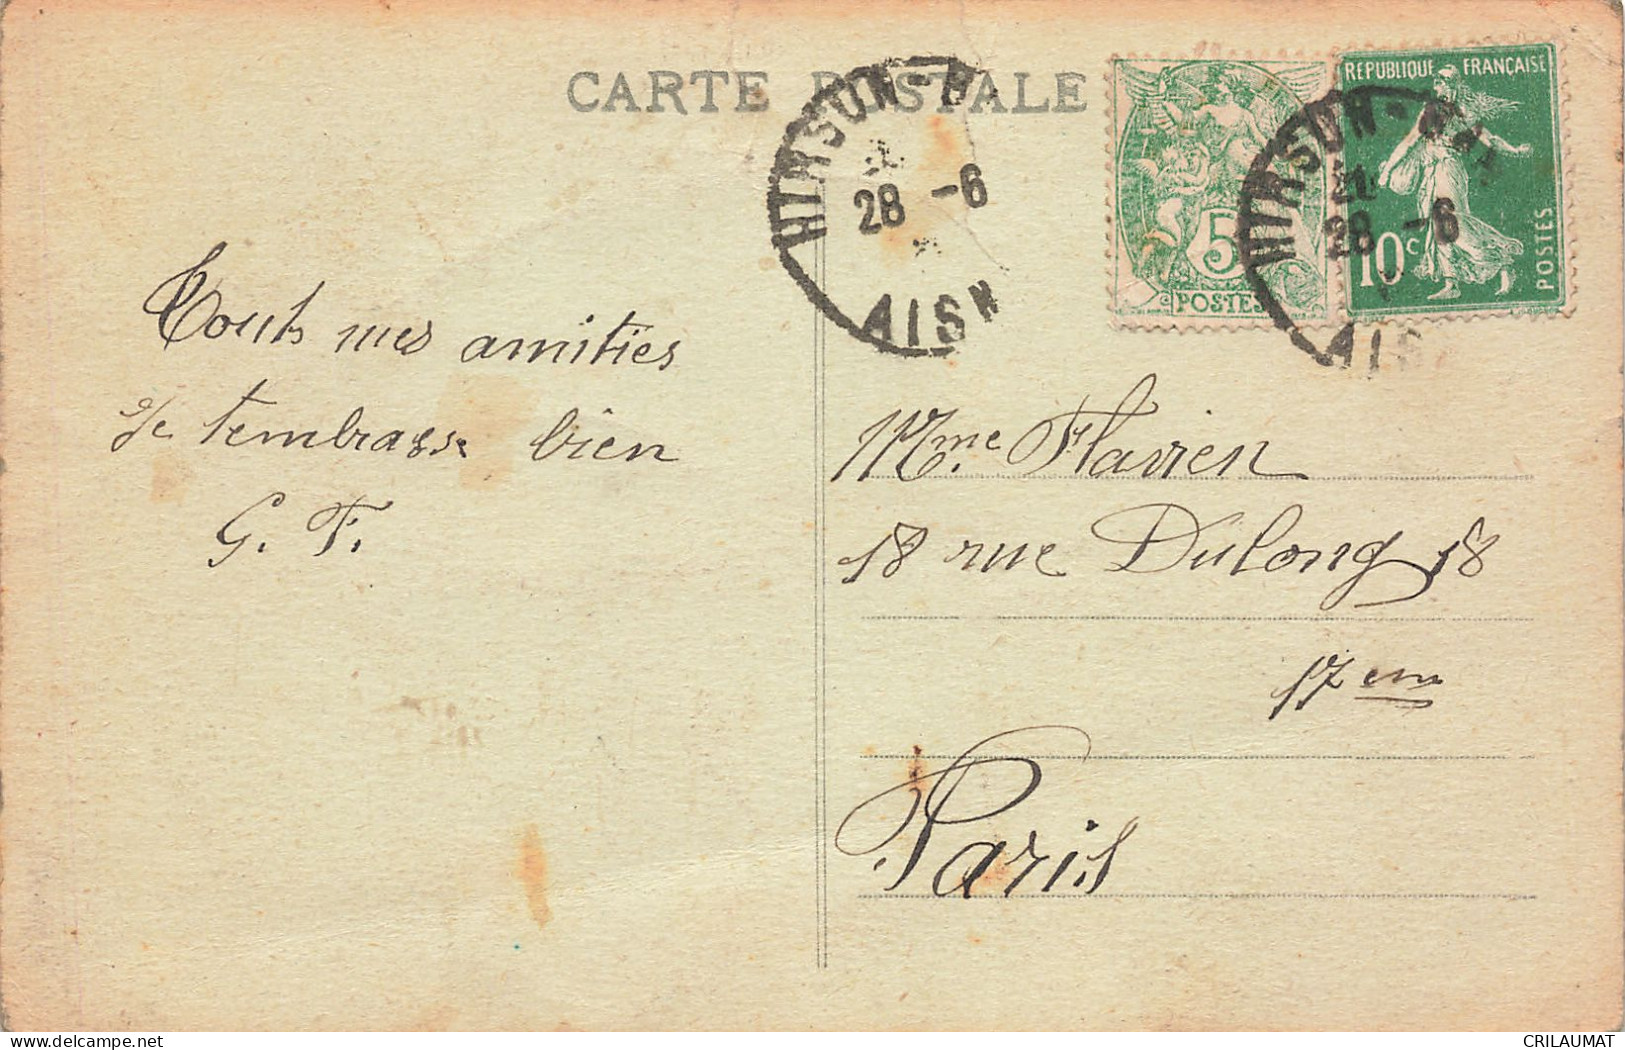 CARTE POSTALE
HIRSON-
28 -6
AISN
5
POSTES
REPUBLIQUE FRANÇAISE
10c
POSTES
HIRSON-
28 -6
AIS
Touts mes amitiés
Je t'embrasse bien
G. F.
Mme Flavien
18 rue Dulong 18
17em
Paris
delcampe.net
CRILAUMAT